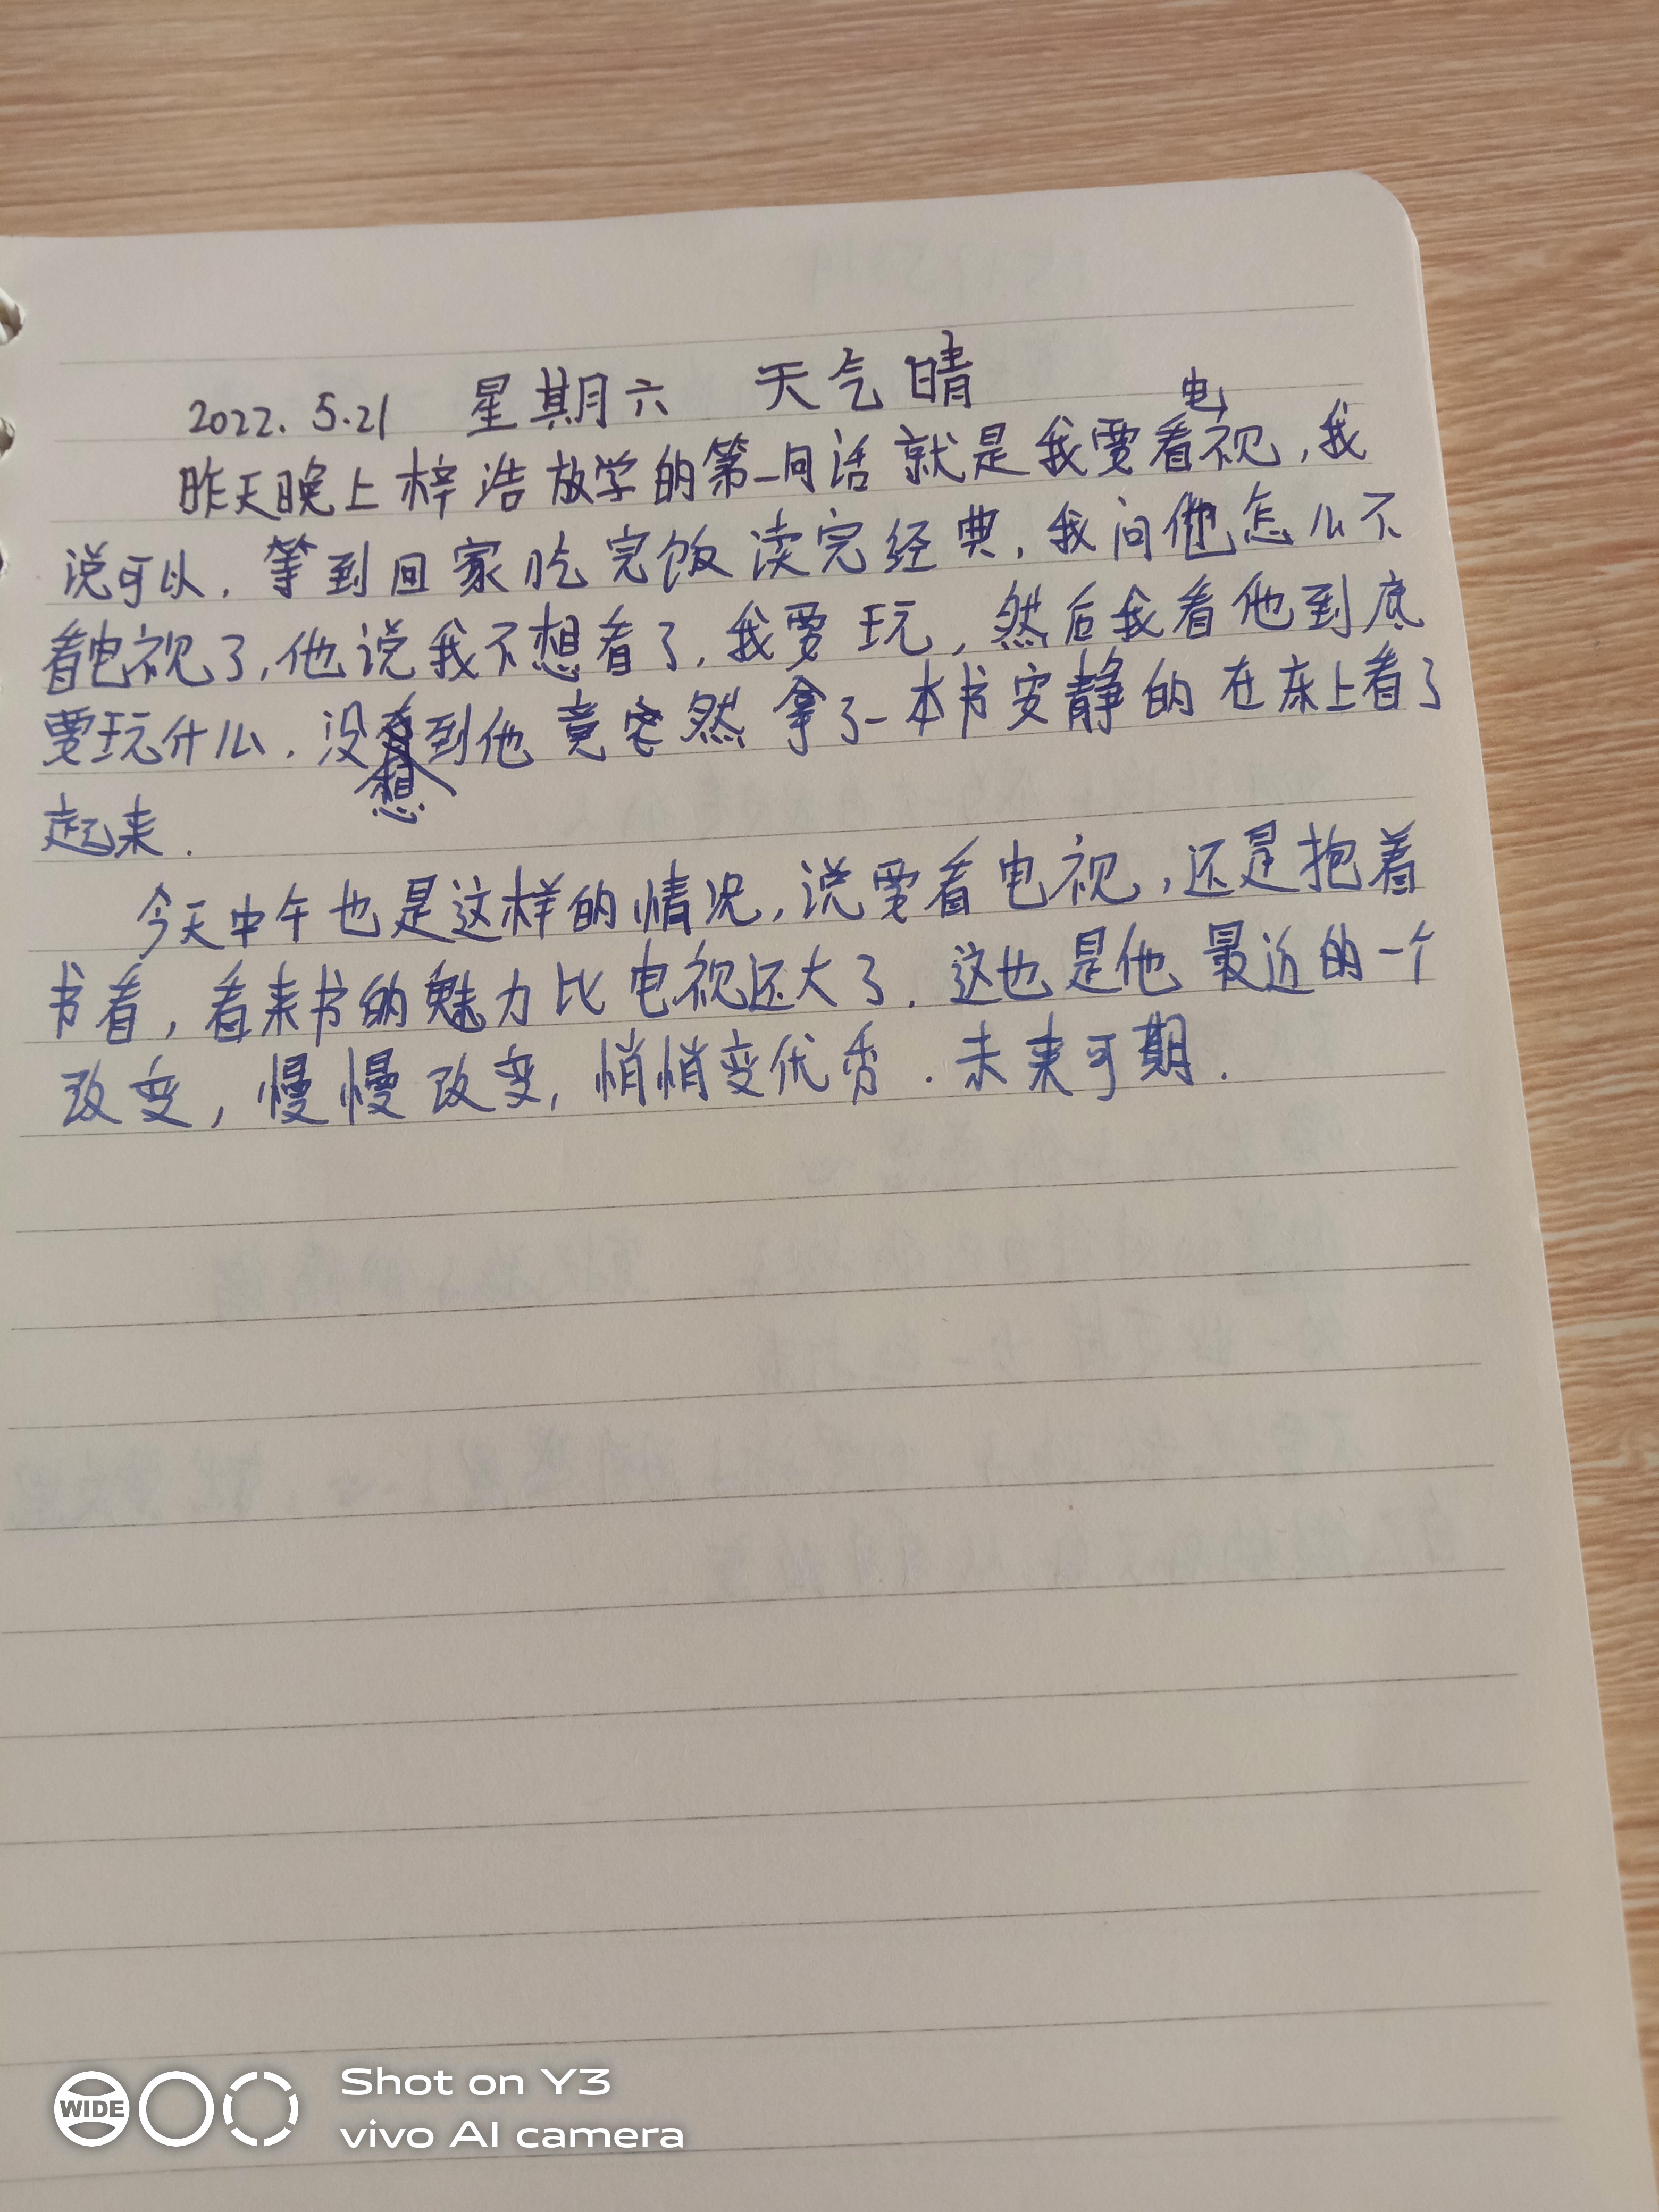 2022. 5.21 星期六 天气晴
昨天晚上梓浩放学的第一句话就是我要看电视,我
说可以. 等到回家吃完饭读完经典. 我问他怎么不
看电视了, 他说我不想看了. 我要玩, 然后我看他到底
要玩什么. 没想到他竟突然拿了一本书安静的在床上看了
起来.
今天中午也是这样的情况, 说要看电视, 还是抱着
书看, 看来书的魅力比电视还大了. 这也是他最近的一个
改变, 慢慢改变, 悄悄变优秀. 未来可期.
WIDE
Shot on Y3
vivo AI camera